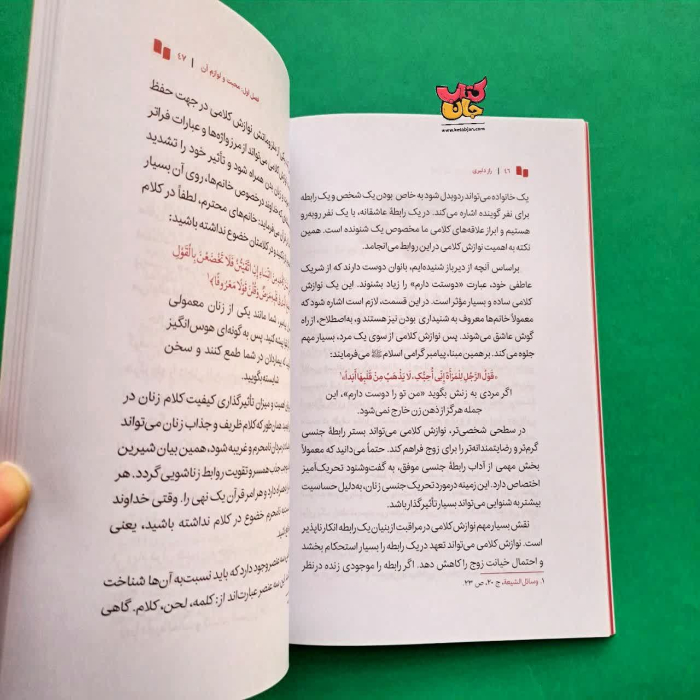 کتاب جان
www.ketabjan.com
۴۶ | راز دلبری
یک خانواده می‌تواند ردوبدل شود به خاص بودن یک شخص و یک رابطه
برای نفر گوینده اشاره می‌کند. در یک رابطهٔ عاشقانه، با یک نفر روبه‌رو
هستیم و ابراز علاقه‌های کلامی ما مخصوص یک شنونده است. همین
نکته به اهمیت نوازش کلامی در این روابط می‌انجامد.
براساس آنچه از دیرباز شنیده‌ایم، بانوان دوست دارند که از شریک
عاطفی خود، عبارت «دوستت دارم» را زیاد بشنوند. این یک نوازش
کلامی ساده و بسیار مؤثر است. در این قسمت، لازم است اشاره شود که
معمولاً خانم‌ها معروف به شنیداری بودن نیز هستند و، به‌اصطلاح، از راه
گوش عاشق می‌شوند. پس نوازش کلامی از سوی یک مرد، بسیار مهم
جلوه می‌کند. بر همین مبنا، پیامبر گرامی اسلام ﷺ می‌فرمایند:
«قَوْلُ الرَّجُلِ لِلْمَرْأَةِ إِنِّي أُحِبُّكِ، لَا يَذْهَبُ مِنْ قَلْبِهَا أَبَداً.»۱
اگر مردی به زنش بگوید «من تو را دوست دارم»، این
جمله هرگز از ذهن زن خارج نمی‌شود.
در سطحی شخصی‌تر، نوازش کلامی می‌تواند بستر رابطهٔ جنسی
گرم‌تر و رضایتمندانه‌تر را برای زوج فراهم کند. حتماً می‌دانید که معمولاً
بخش مهمی از آداب رابطهٔ جنسی موفق، به گفت‌وشنود تحریک‌آمیز
اختصاص دارد. این زمینه در مورد تحریک جنسی زنان، به‌دلیل حساسیت
بیشتر به شنوایی می‌تواند بسیار تأثیرگذار باشد.
نقش بسیار مهم نوازش کلامی در مراقبت از بنیان یک رابطه انکارناپذیر
است. نوازش کلامی می‌تواند تعهد در یک رابطه را بسیار استحکام بخشد
و احتمال خیانت زوج را کاهش دهد. اگر رابطه را موجودی زنده در نظر
۱. وسائل الشیعة، ج ۲۰، ص ۲۳.
فصل اول: محبت و لوازم آن | ۴۷
نوازش کلامی در جهت حفظ
کلامی می‌تواند از مرز واژه‌ها و عبارات فراتر
همراه شود و تأثیر خود را تشدید
که خداوند در خصوص خانم‌ها، روی آن بسیار
می‌فرماید: خانم‌های محترم، لطفاً در کلام
و در کلامتان خضوع نداشته باشید:
النِّسَاءِ إِنِ اتَّقَيْتُنَّ فَلَا تَخْضَعْنَ بِالْقَوْلِ
مَرَضٌ وَقُلْنَ قَوْلًا مَعْرُوفًا﴾۱
شما مانند یکی از زنان معمولی
کنید. پس به گونه‌ای هوس‌انگیز
بیماردلان در شما طمع کنند و سخن
شایسته بگویید.
و میزان تأثیرگذاری کیفیت کلام زنان در
همان‌طور که کلام ظریف و جذاب زنان می‌تواند
مردان نامحرم و غریبه شود، همین بیان شیرین
جذب همسر و تقویت روابط زناشویی گردد. هر
دارد و هر امر قرآن یک نهی را. وقتی خداوند
نامحرم خضوع در کلام نداشته باشید، یعنی
عنصر وجود دارد که باید نسبت به آن‌ها شناخت
این سه عنصر عبارت‌اند از: کلمه، لحن، کلام. گاهی